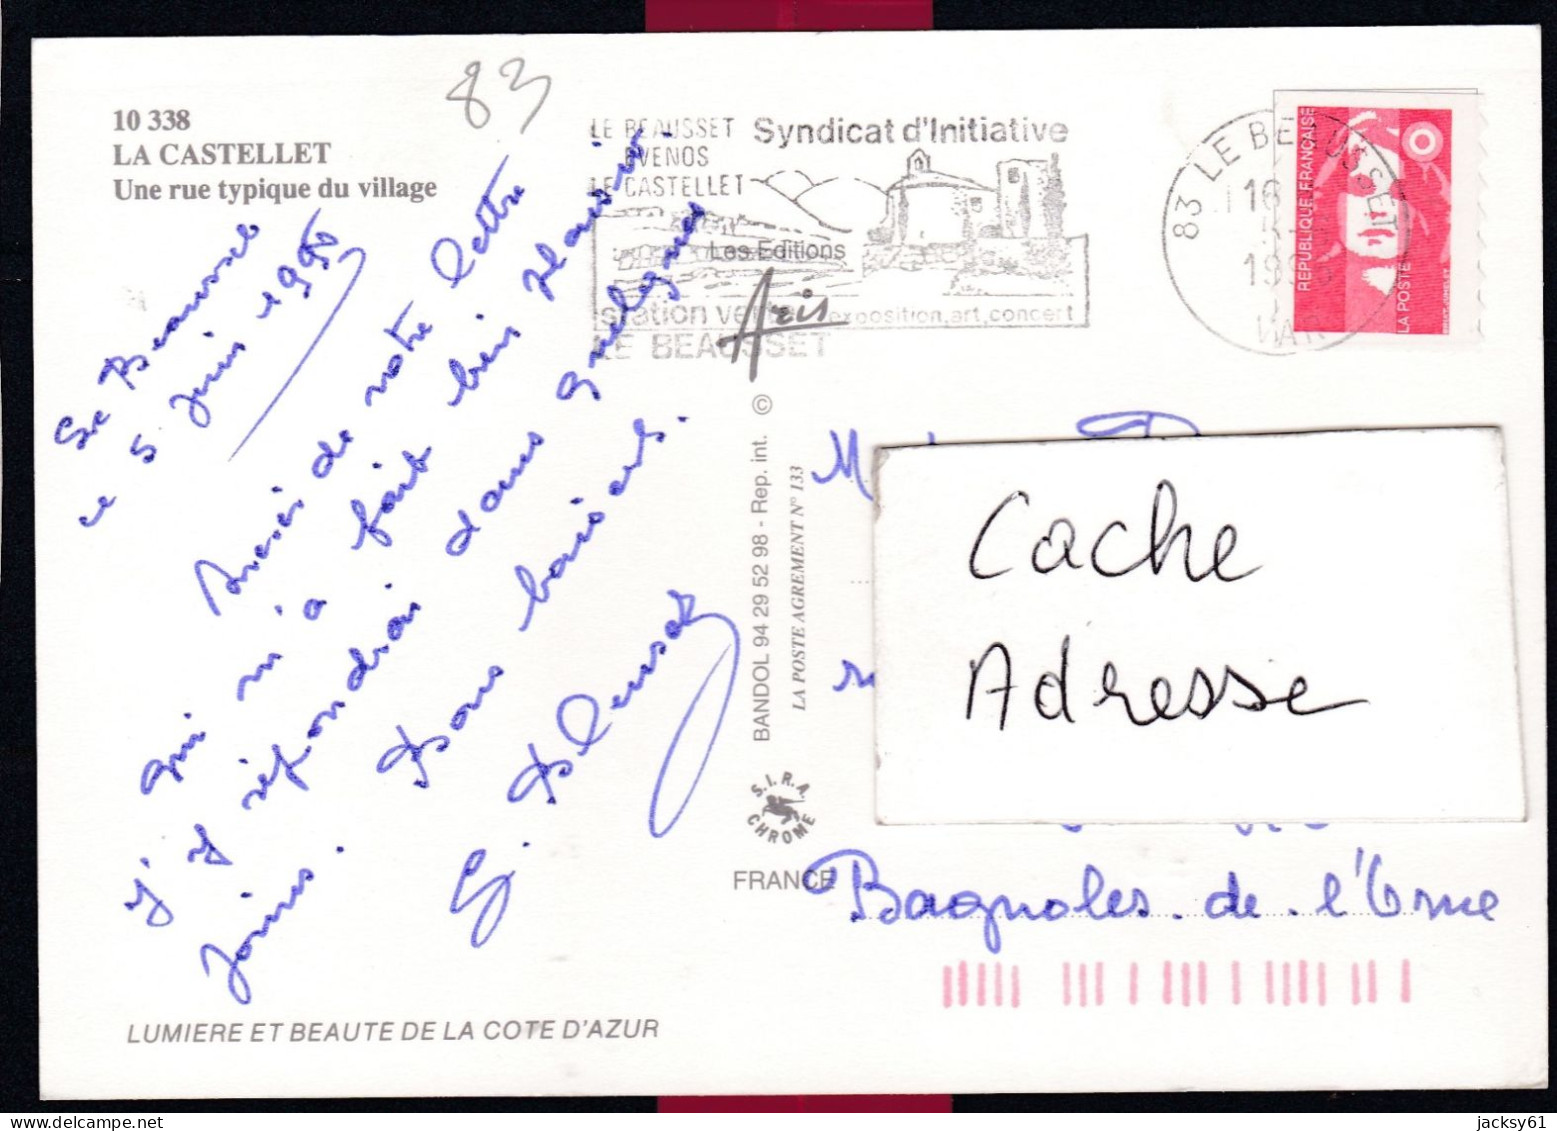 10 338
LA CASTELLET
Une rue typique du village
83
Le Beausset
ce 5 Juin 1995
Merci de votre lettre
qui m'a fait bien plaisir.
j'y répondrai dans quelques
jours. Bons baisers.
LE BEAUSSET
EVENOS
LE CASTELLET
Syndicat d'Initiative
station verte exposition, art, concert
LE BEAUSSET
Les Editions
Aris
83 LE BEAUSSET
16
19
VAR
REPUBLIQUE FRANÇAISE
LA POSTE
BANDOL 94 29 52 98 - Rep. int. ©
LA POSTE AGREMENT N° 133
S.I.R.A.
CHROME
FRANCE
Cache
Adresse
Bagnoles. de. l'Orne
LUMIERE ET BEAUTE DE LA COTE D'AZUR
jacksy61